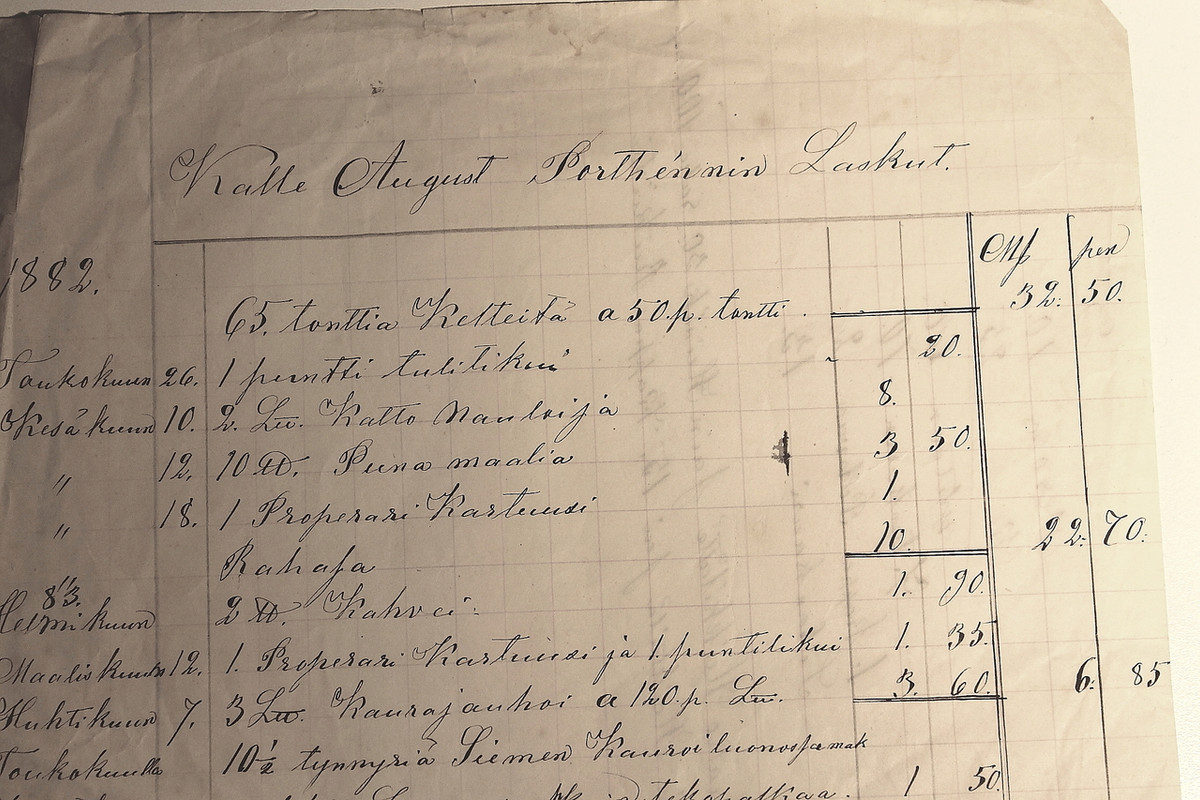 Kalle August Porthénnin Laskut.
1882. Mk pen
65. tonttia Kelteitä a 50.p. tontti. 32. 50.
Toukokuun 26. 1 puntti tulitikui 20.
Kesäkuun 10. 2. Lu. Katto Nauloija 8.
" 12. 10 tt. Puna maalia 3 50.
" 18. 1 Properari Kartuusi 1.
Rahasa 10. 22. 70.
83. Helmikuun 2 tt. Kahvei 1. 90.
Maaliskuun 12. 1. Properari Kartuusi ja 1. puntilikui 1. 35.
Huhtikuun 7. 3 Lu. Kaurajauhoi a 120.p. Lu. 3. 60. 6. 85
Toukokuulla 10½ tynnyriä Siemen Kauroi
1 50.